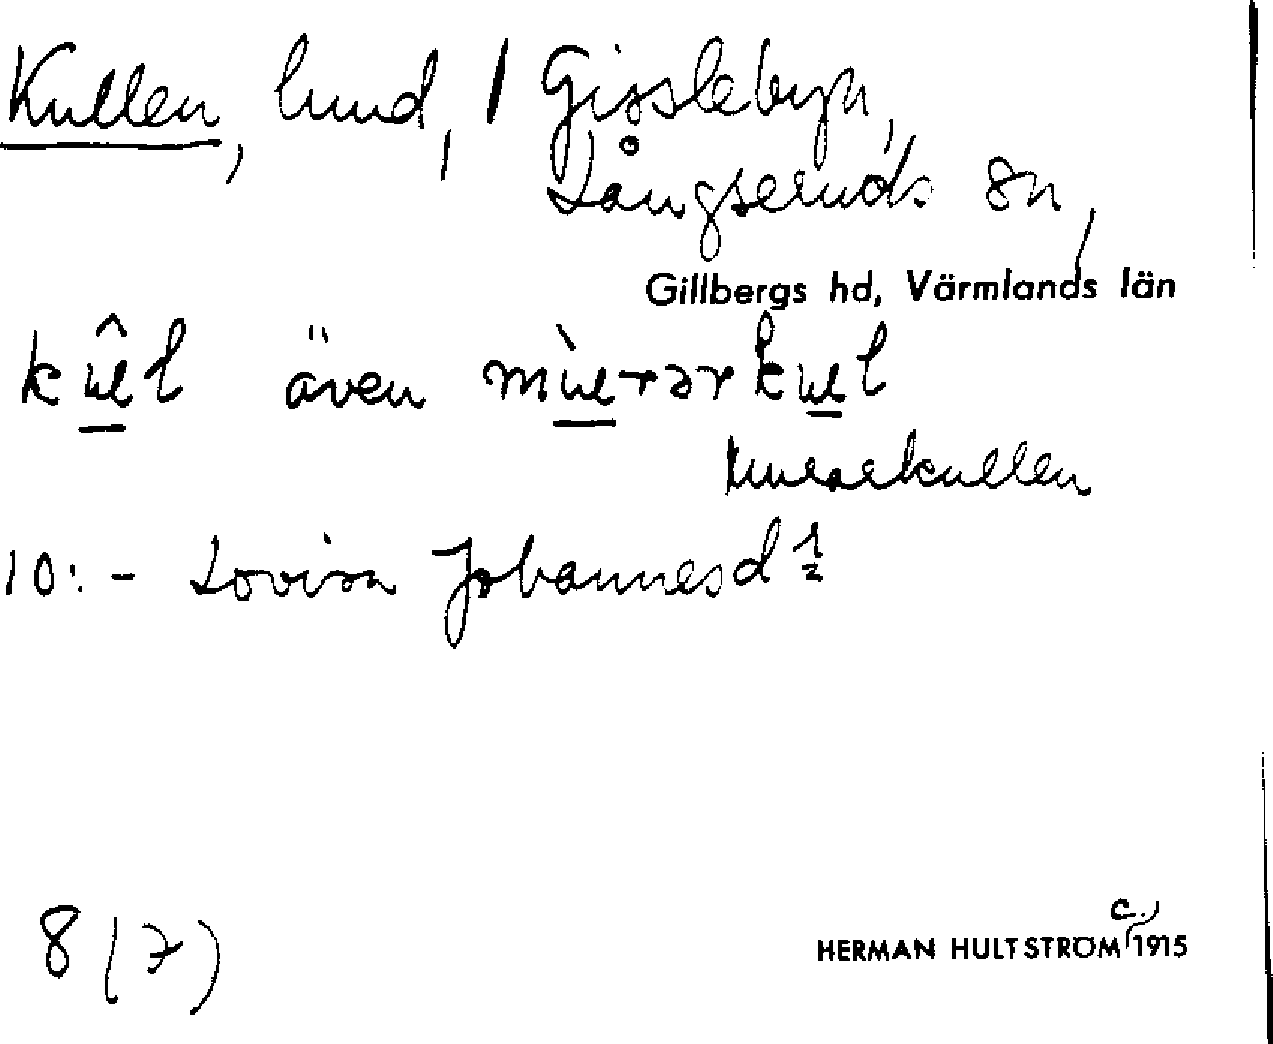 Kullen, lund, / Gisslebyn,
Långseruds sn,
Gillbergs hd, Värmlands län
kûl även mùrərkul
Murarekullen
10:- Lovisa Johannesd
8 (7)
c.
HERMAN HULTSTRÖM 1915